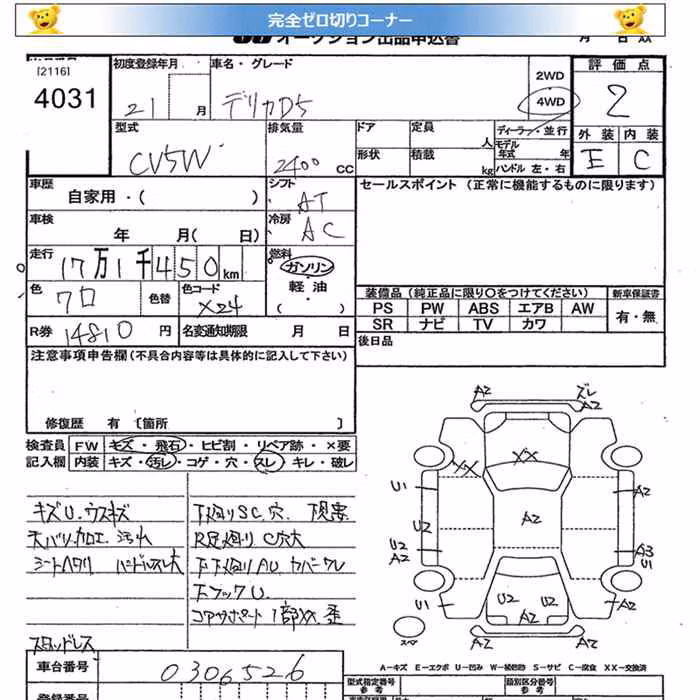 完全ゼロ切りコーナー
オークション出品申込書
月 日
[2116]
4031
初度登録年月
21 月
車名・グレード
デリカD5
2WD
4WD
評価点
2
型式
CV5W
排気量
2400 CC
ドア
定員
人
形状
積載
kg
ディーラー・並行
モデル年式 年
ハンドル 左・右
外装
内装
E
C
車歴
自家用・( )
シフト
AT
セールスポイント (正常に機能するものに限ります)
車検
年 月( 日)
冷房
AC
走行
17万1千450km
燃料
ガソリン
軽油
( )
色
クロ
色替
色コード
X24
装備品 (純正品に限り○をつけてください)
PS PW ABS エアB AW
SR ナビ TV カワ
新車保証書
有・無
R券 14810 円
名変通知期限 月 日
後日品
注意事項申告欄(不具合内容等は具体的に記入して下さい)
修復歴 有 〔箇所 〕
検査員 FW キズ・飛石・ヒビ割・リペア跡・×要
記入欄 内装 キズ・汚レ・コゲ・穴・スレ・キレ・破レ
キズU.ウスキズ
天バリ.カロエ.汚れ
シートヘタリ ハンドルスレ大
スタッドレス
下廻りSC.穴.
R足廻り C穴大
F下廻りAU カバーワレ
FフックU.
コアサポート1部XX 歪
A2
ズレ
A2
XX
XX
U1
A2
U2
A2
U2
A2
A3
U1
U2
U2
U1
A2
A2
A2
スペア
A−キズ E−エクボ U−凹み W−補修跡 S−サビ C−腐食 XX−交換済
車台番号
0306526
型式指定番号
参考
類別区分番号
参考
登録番号